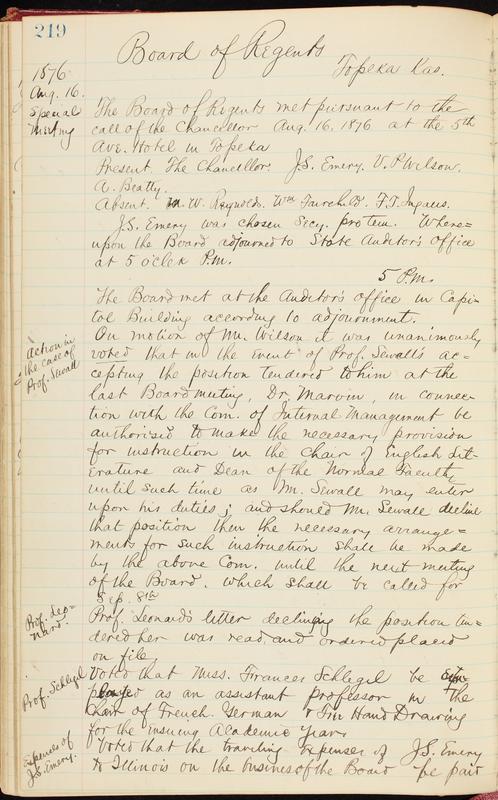 249
Board of Regents
Topeka Kas.
1876
Aug. 16.
Special
Meeting
The Board of Regents met pursuant to the
call of the Chancellor Aug. 16, 1876 at the 5th
Ave. Hotel in Topeka
Present. The Chancellor. J.S. Emery. V.P. Wilson.
A. Beatty.
Absent. M.W. Reynolds. Wm Fairchild. F.T. Ingalls.
J.S. Emery was chosen Secy. pro tem. Where=
upon the Board adjourned to State Auditor's office
at 5 oclck P.M.
5 P.M.
The Board met at the Auditor's office in Capi-
tol Building according to adjournment.
Action in
the case of
Prof. Sewall
On motion of Mr. Wilson it was unanimously
voted that in the event of Prof. Sewall's ac-
cepting the position tendered to him at the
last Board meeting, Dr. Marvin, in connec-
tion with the Com. of Internal Management be
authorised to make the necessary provision
for instruction in the Chair of English Lit-
erature and Dean of the Normal Faculty
until such time as Mr. Sewall may enter
upon his duties; and should Mr. Sewall decline
that position then the necessary arrange=
ments for such instruction shall be made
by the above Com. until the next meeting
of the Board. which shall be called for
Sep. 8th
Prof. Leo=
nard.
Prof. Leonard's letter declining the position ten-
dered her was read, and ordered placed
on file
Prof. Schlegel
Voted that Miss. Frances Schlegel be em-
ployed as an assistant professor in the
Chair of French. German & Free Hand Drawing
for the insuing Academic year.
Expenses of
J.S. Emery.
Voted that the traveling expenses of J.S. Emery
to Illinois on the business of the Board be paid